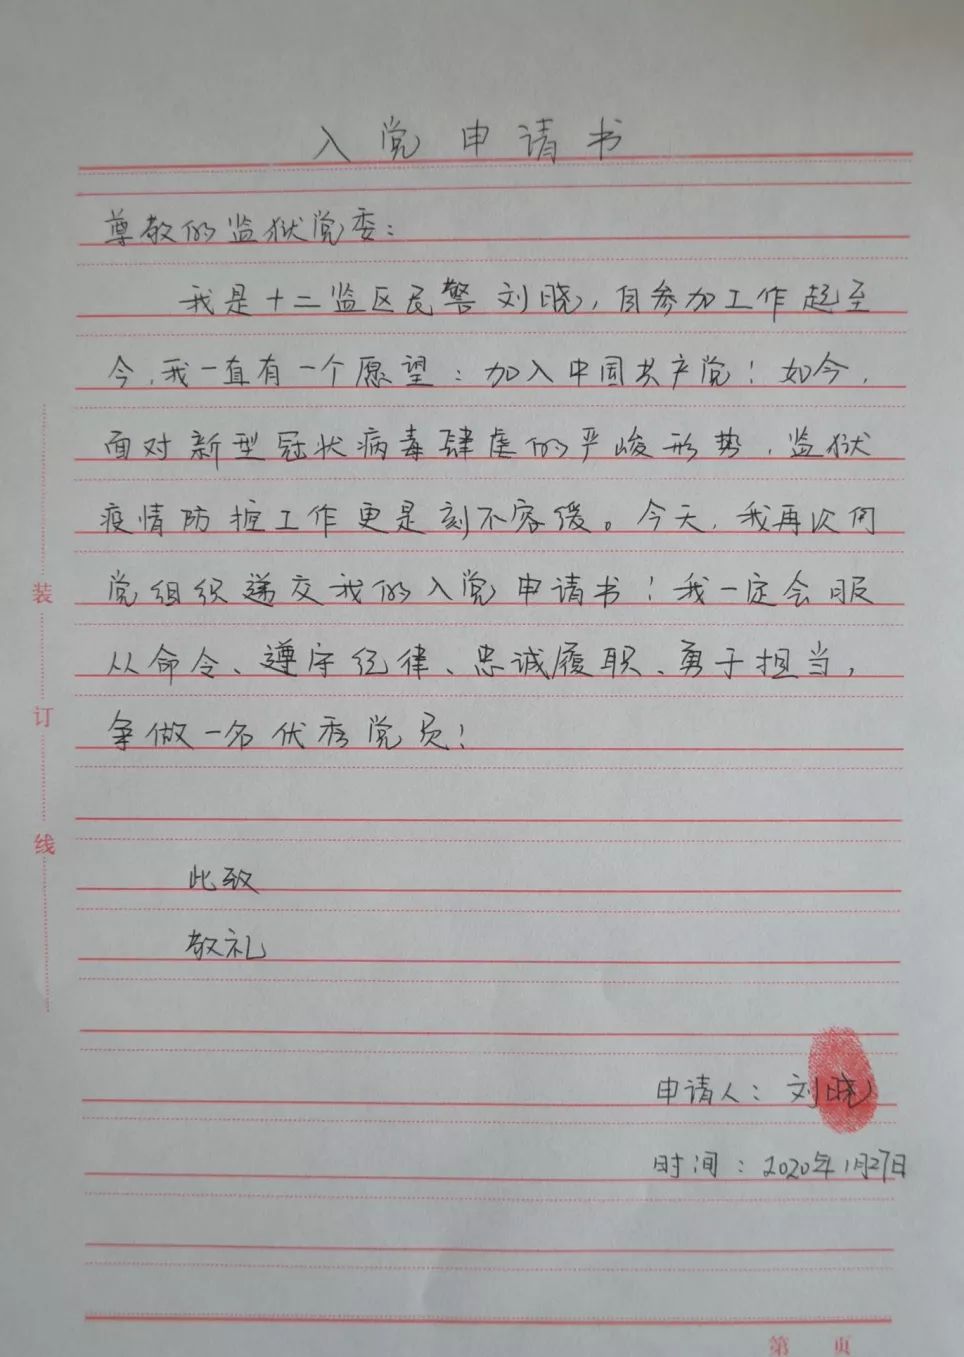 入党申请书
尊敬的监狱党委：
我是十二监区民警刘晓，自参加工作起至
今，我一直有一个愿望：加入中国共产党！如今，
面对新型冠状病毒肆虐的严峻形势，监狱
疫情防控工作更是刻不容缓。今天，我再次向
党组织递交我的入党申请书！我一定会服
从命令、遵守纪律、忠诚履职、勇于担当，
争做一名优秀党员！
此致
敬礼
申请人：刘晓
时间：2020年1月27日
装
订
线
第 页